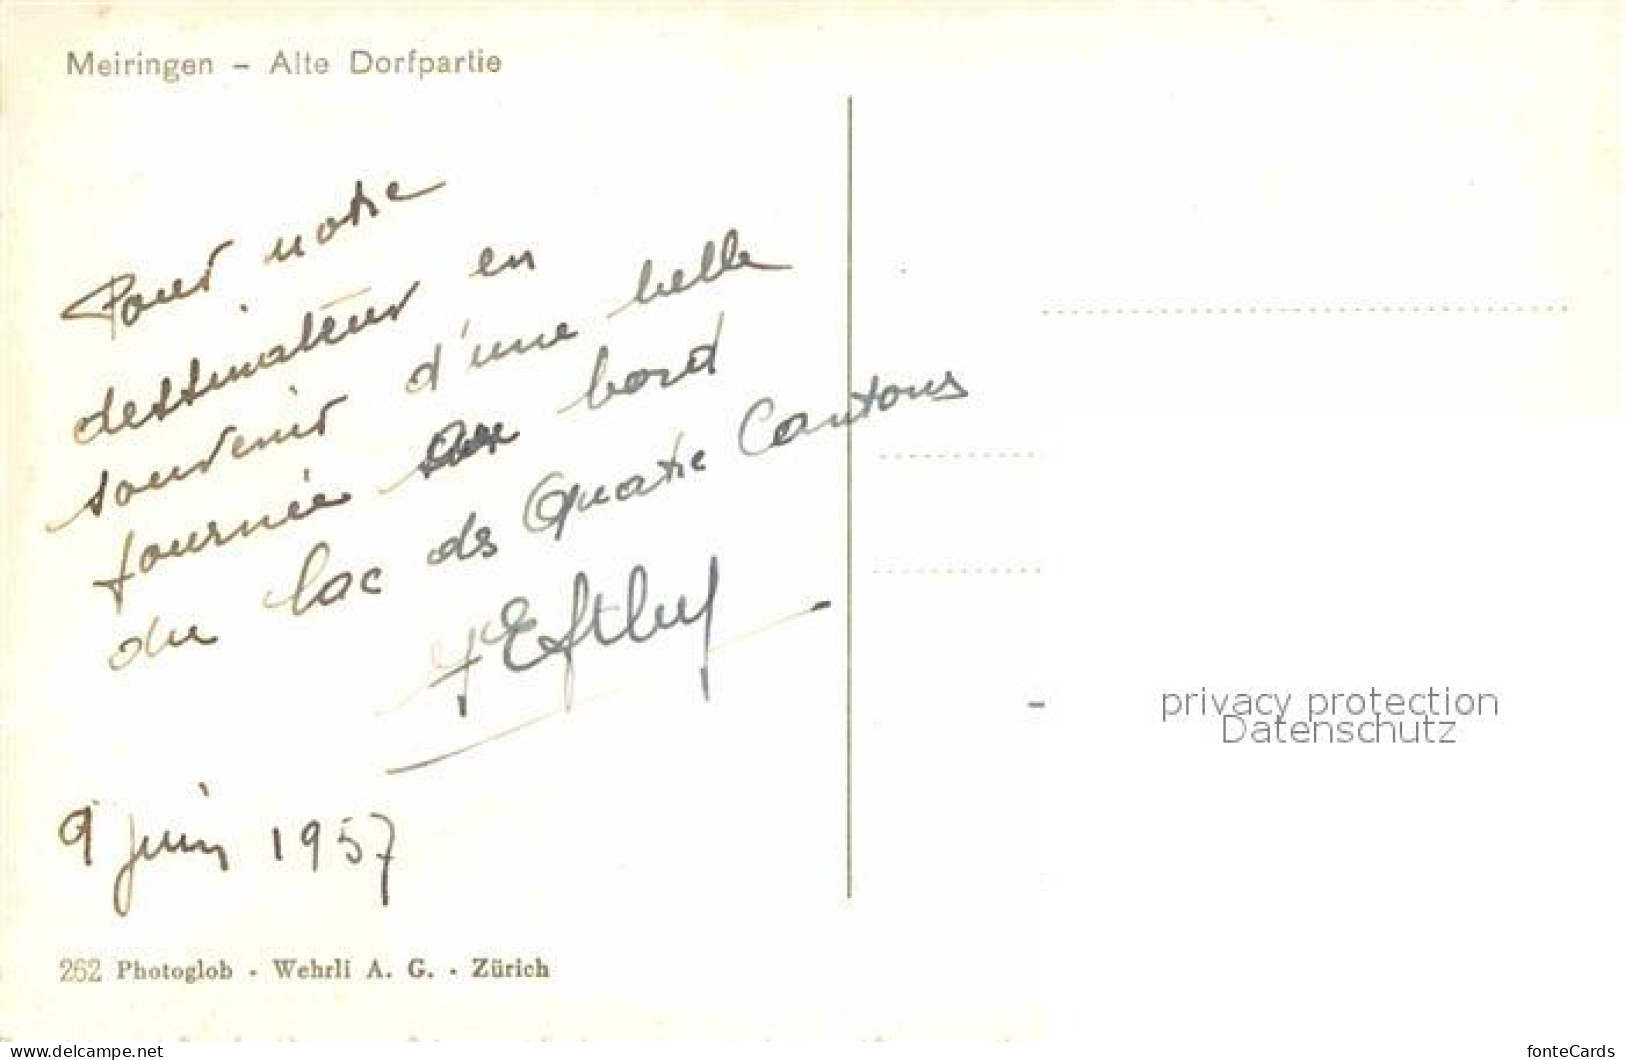 Meiringen – Alte Dorfpartie
Pour notre
dessinateur en
souvenir d'une belle
journée au bord
du lac des Quatre Cantons
9 juin 1957
262 Photoglob - Wehrli A. G. - Zürich
privacy protection
Datenschutz
www.delcampe.net
fonteCards